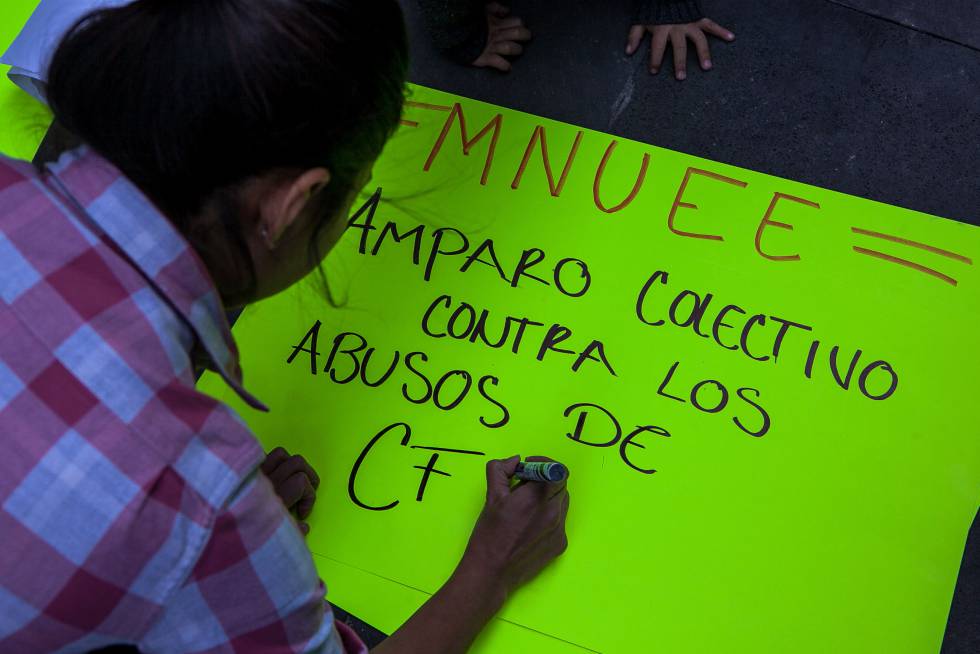 =MNUEE=
AMPARO COLECTIVO
CONTRA LOS
ABUSOS DE
CF